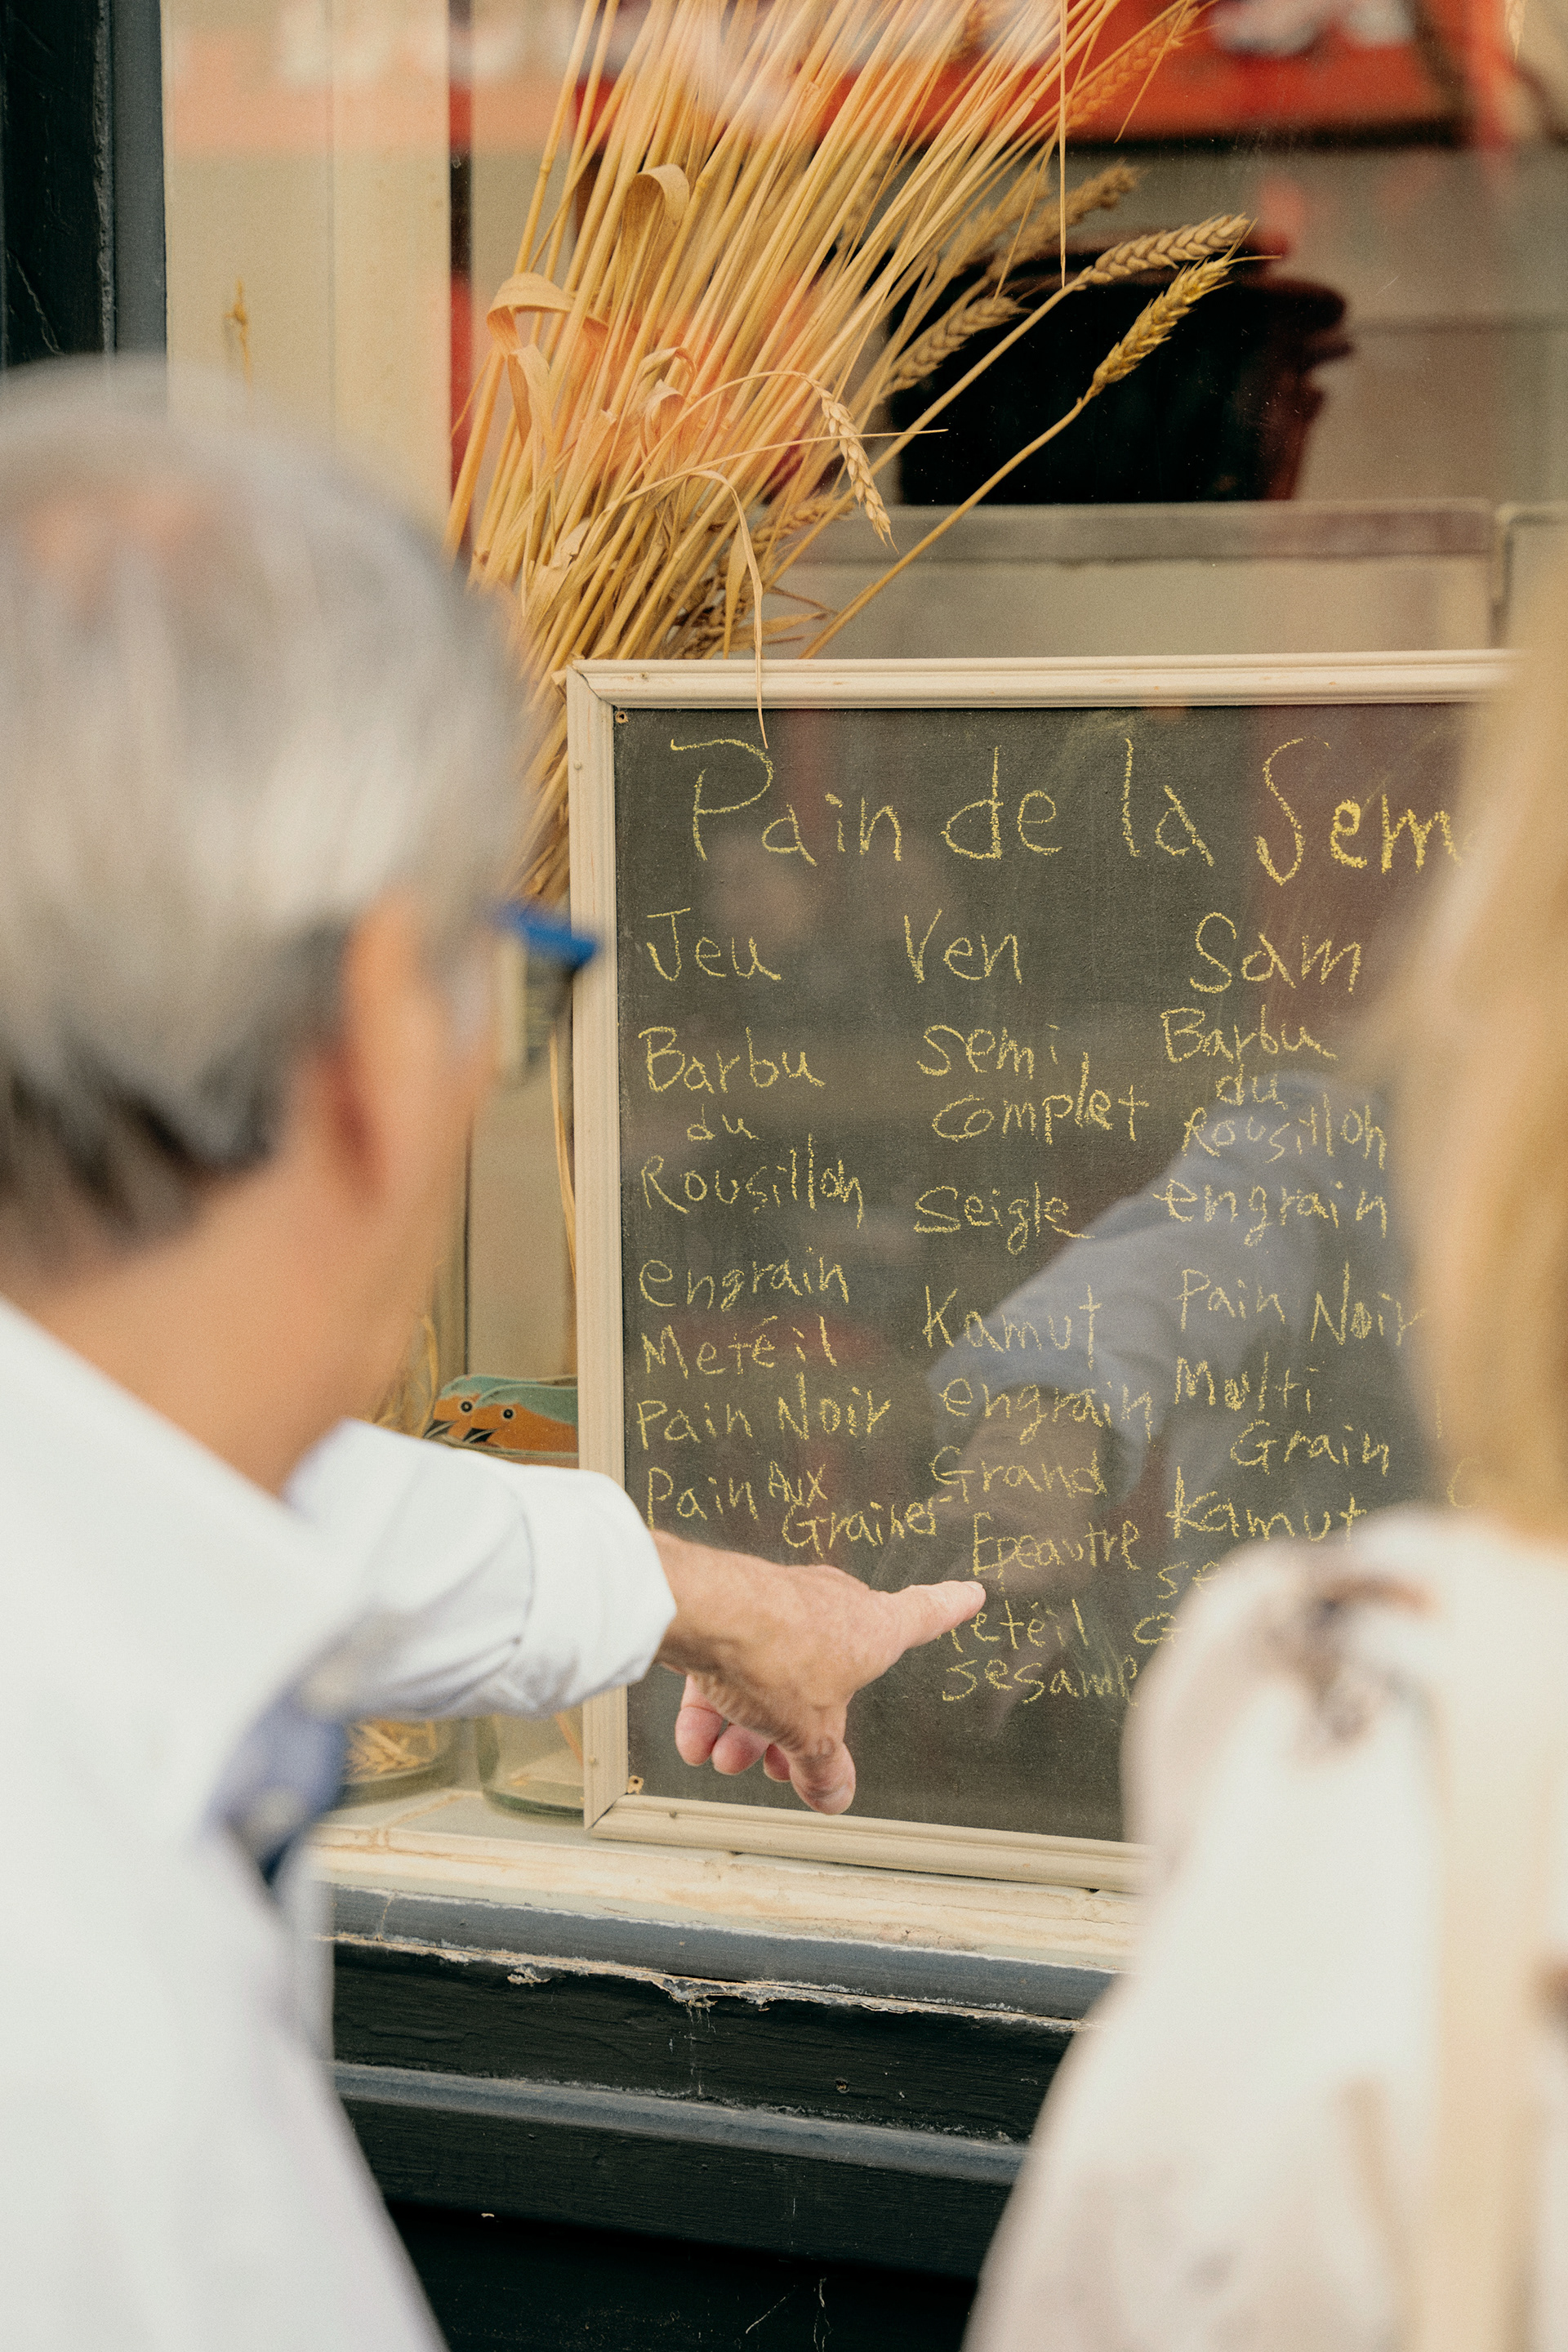 Pain de la Sem
Jeu
Barbu
du
Rousillon
engrain
Metéil
Pain Noir
Pain Aux
Graines
Ven
semi
complet
Seigle
Kamut
engrain
Grand
Epeautre
etéil
sesame
Sam
Barbu
du
Rousillon
engrain
Pain Noir
Multi
Grain
Kamut